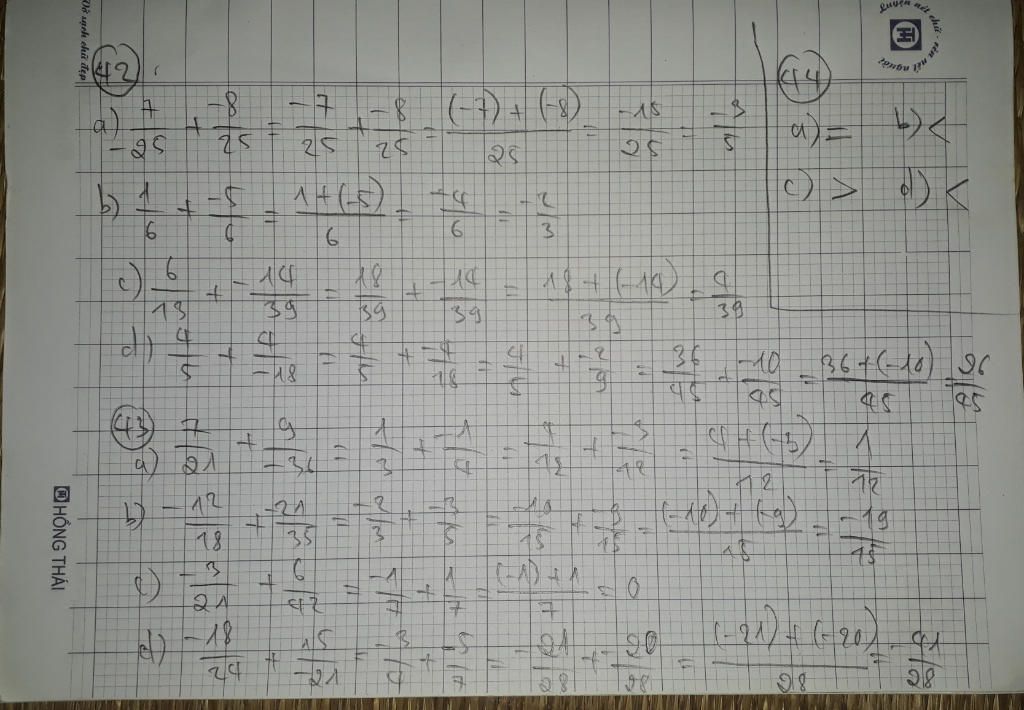 Vở sạch chữ đẹp
Luyện nét chữ - rèn nết người
42
a) 7/-25 + -8/25 = -7/25 + -8/25 = (-7) + (-8)/25 = -15/25 = -3/5
b) 1/6 + -5/6 = 1 + (-5)/6 = -4/6 = -2/3
c) 6/13 + -14/39 = 18/39 + -14/39 = 18 + (-14)/39 = 4/39
d) 4/5 + 4/-18 = 4/5 + -4/18 = 4/5 + -2/9 = 36/45 + -10/45 = 36 + (-10)/45 = 26/45
44
a) = b) <
c) > d) <
43
a) 7/21 + 9/-36 = 1/3 + -1/4 = 4/12 + -3/12 = 4 + (-3)/12 = 1/12
b) -12/18 + -21/35 = -2/3 + -3/5 = -10/15 + -9/15 = (-10) + (-9)/15 = -19/15
c) -3/21 + 6/42 = -1/7 + 1/7 = (-1) + 1/7 = 0
d) -18/24 + 15/-21 = -3/4 + -5/7 = -21/28 + -20/28 = (-21) + (-20)/28 = -41/28
HỒNG THÁI